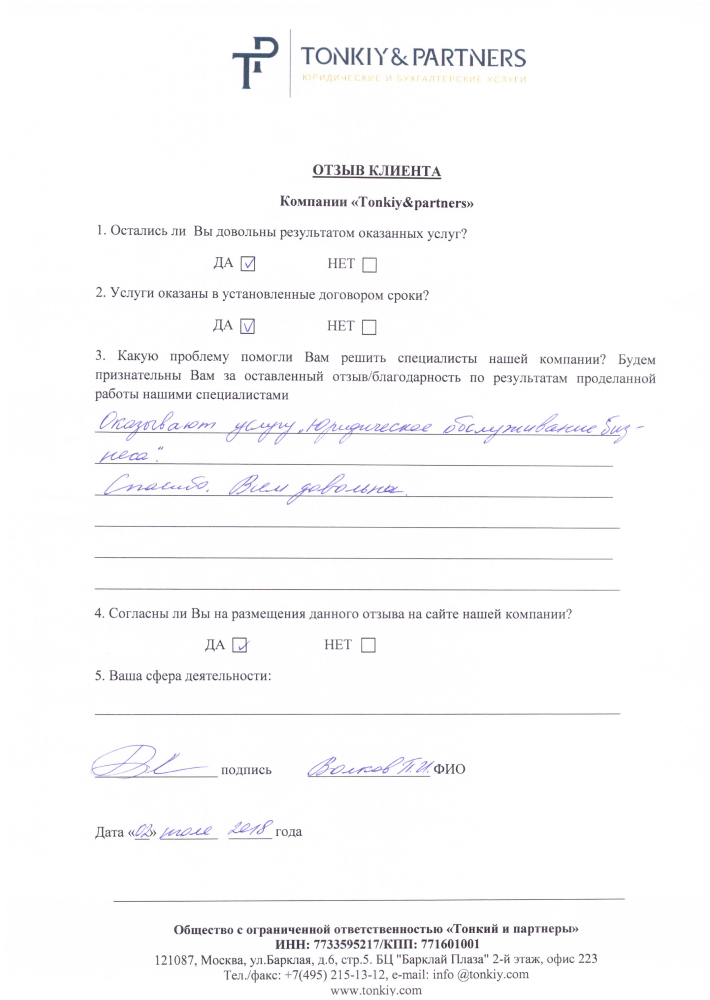 TP
TONKIY & PARTNERS
ЮРИДИЧЕСКИЕ И БУХГАЛТЕРСКИЕ УСЛУГИ
ОТЗЫВ КЛИЕНТА
Компании «Tonkiy&partners»
1. Остались ли Вы довольны результатом оказанных услуг?
ДА ☑ НЕТ ☐
2. Услуги оказаны в установленные договором сроки?
ДА ☑ НЕТ ☐
3. Какую проблему помогли Вам решить специалисты нашей компании? Будем
признательны Вам за оставленный отзыв/благодарность по результатам проделанной
работы нашими специалистами
Оказывают услугу „Юридическое обслуживание биз-
неса".
Спасибо. Всем довольна.
4. Согласны ли Вы на размещения данного отзыва на сайте нашей компании?
ДА ☑ НЕТ ☐
5. Ваша сфера деятельности:
подпись Волков П.И. ФИО
Дата «02» июля 2018 года
Общество с ограниченной ответственностью «Тонкий и партнеры»
ИНН: 7733595217/КПП: 771601001
121087, Москва, ул.Барклая, д.6, стр.5. БЦ "Барклай Плаза" 2-й этаж, офис 223
Тел./факс: +7(495) 215-13-12, e-mail: info @tonkiy.com
www.tonkiy.com